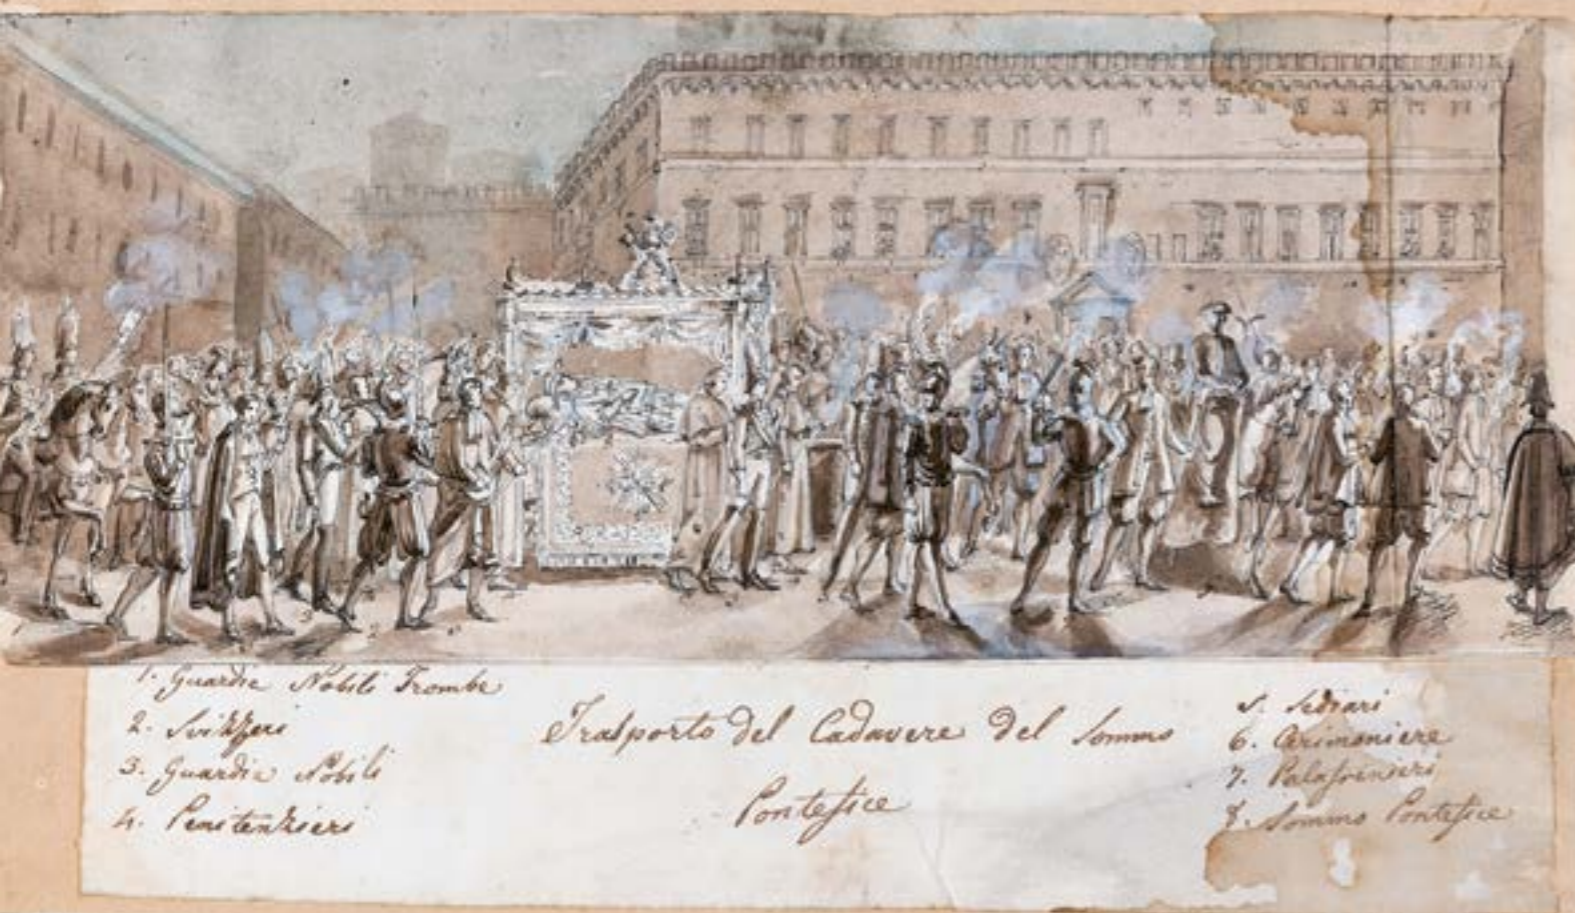 1. Guardie Nobili Trombe
2. Svizzeri
3. Guardie Nobili
4. Penitenzieri
Trasporto del Cadavere del Sommo
Pontefice
5. Sediari
6. Cerimoniere
7. Palafrenieri
8. Sommo Pontefice